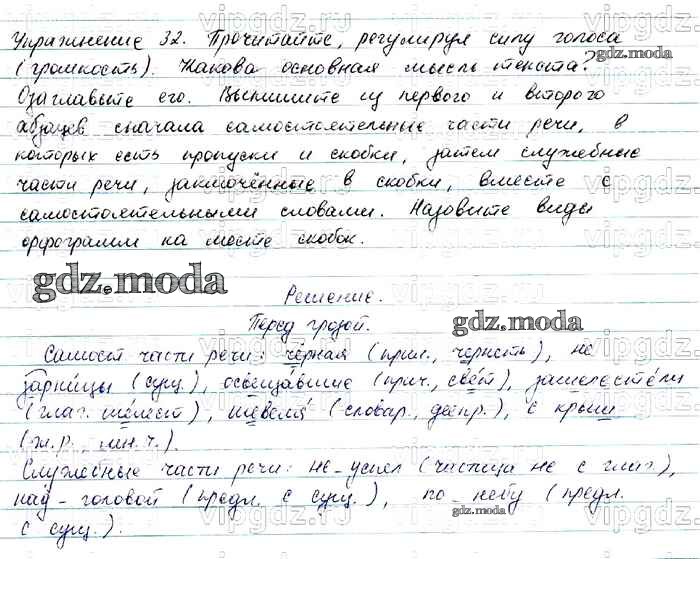 Упражнение 32. Прочитайте, регулируя силу голоса
(громкость). Какова основная мысль текста?
gdz.moda
Озаглавьте его. Выпишите из первого и второго
абзацев сначала самостоятельные части речи, в
которых есть пропуски и скобки, затем служебные
части речи, заключённые в скобки, вместе с
самостоятельными словами. Назовите виды
орфограмм на месте скобок.
gdz.moda
Решение.
Перед грозой.
gdz.moda
Самост части речи: чёрная (прил., чернить), не
зарницы (сущ.), освещавшие (прич., свет), зашелестели
(глаг. шелест), шевеля (словар., деепр.), с крыш
(ж.р., мн.ч.).
Служебные части речи: не успел (частица не с глаг.),
над головой (предл. с сущ.), по небу (предл.
с сущ.).
gdz.moda
vipgdz.ru